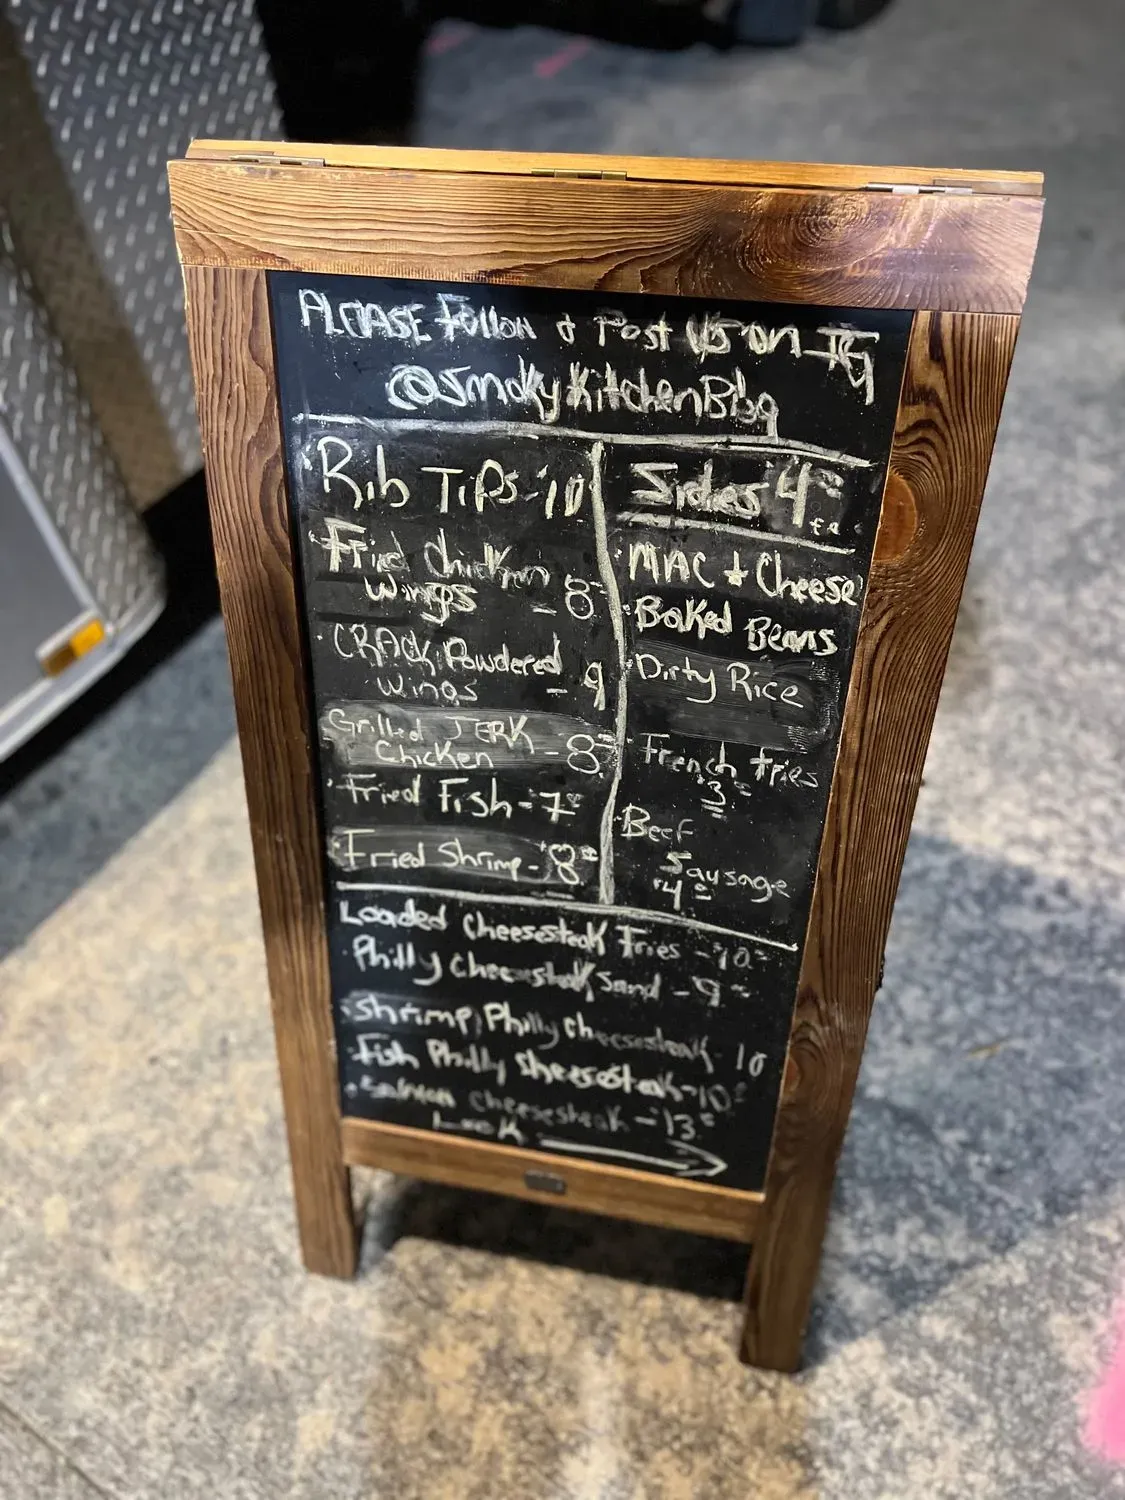 PLEASE Follow & Post US on IG
@SmokyKitchenBbq
Rib TIPS - 10
Fried chicken
wings - 8
CRACK Powdered
wings - 9
Grilled JERK
Chicken - 8
Fried Fish - 7
Fried Shrimp - 8
Sides 4 ea
MAC + Cheese
Baked Beans
Dirty Rice
French fries
3
Beef
Sausage
4
Loaded Cheesesteak Fries - 10
Philly Cheesesteak Sand - 9
Shrimp Philly cheesesteak - 10
Fish Philly Cheesesteak - 10
Salmon cheesesteak - 13
Look